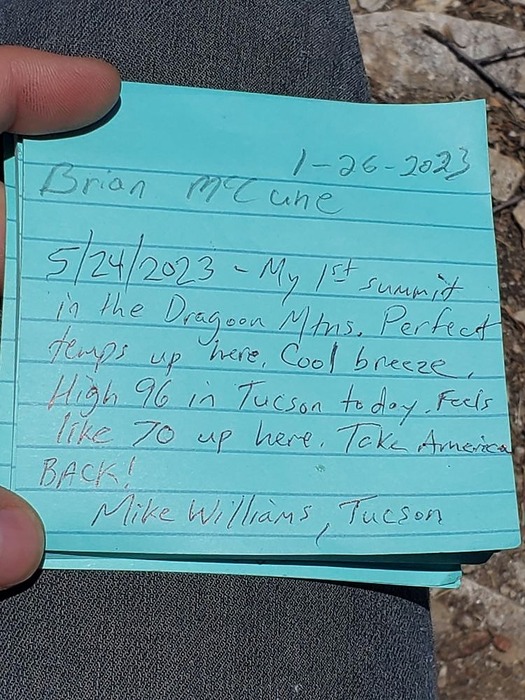 1-26-2023
Brian McCune
5/24/2023 - My 1st summit
in the Dragoon Mtns. Perfect
temps up here. Cool breeze.
High 96 in Tucson today. Feels
like 70 up here. Take America
BACK!
Mike Williams, Tucson